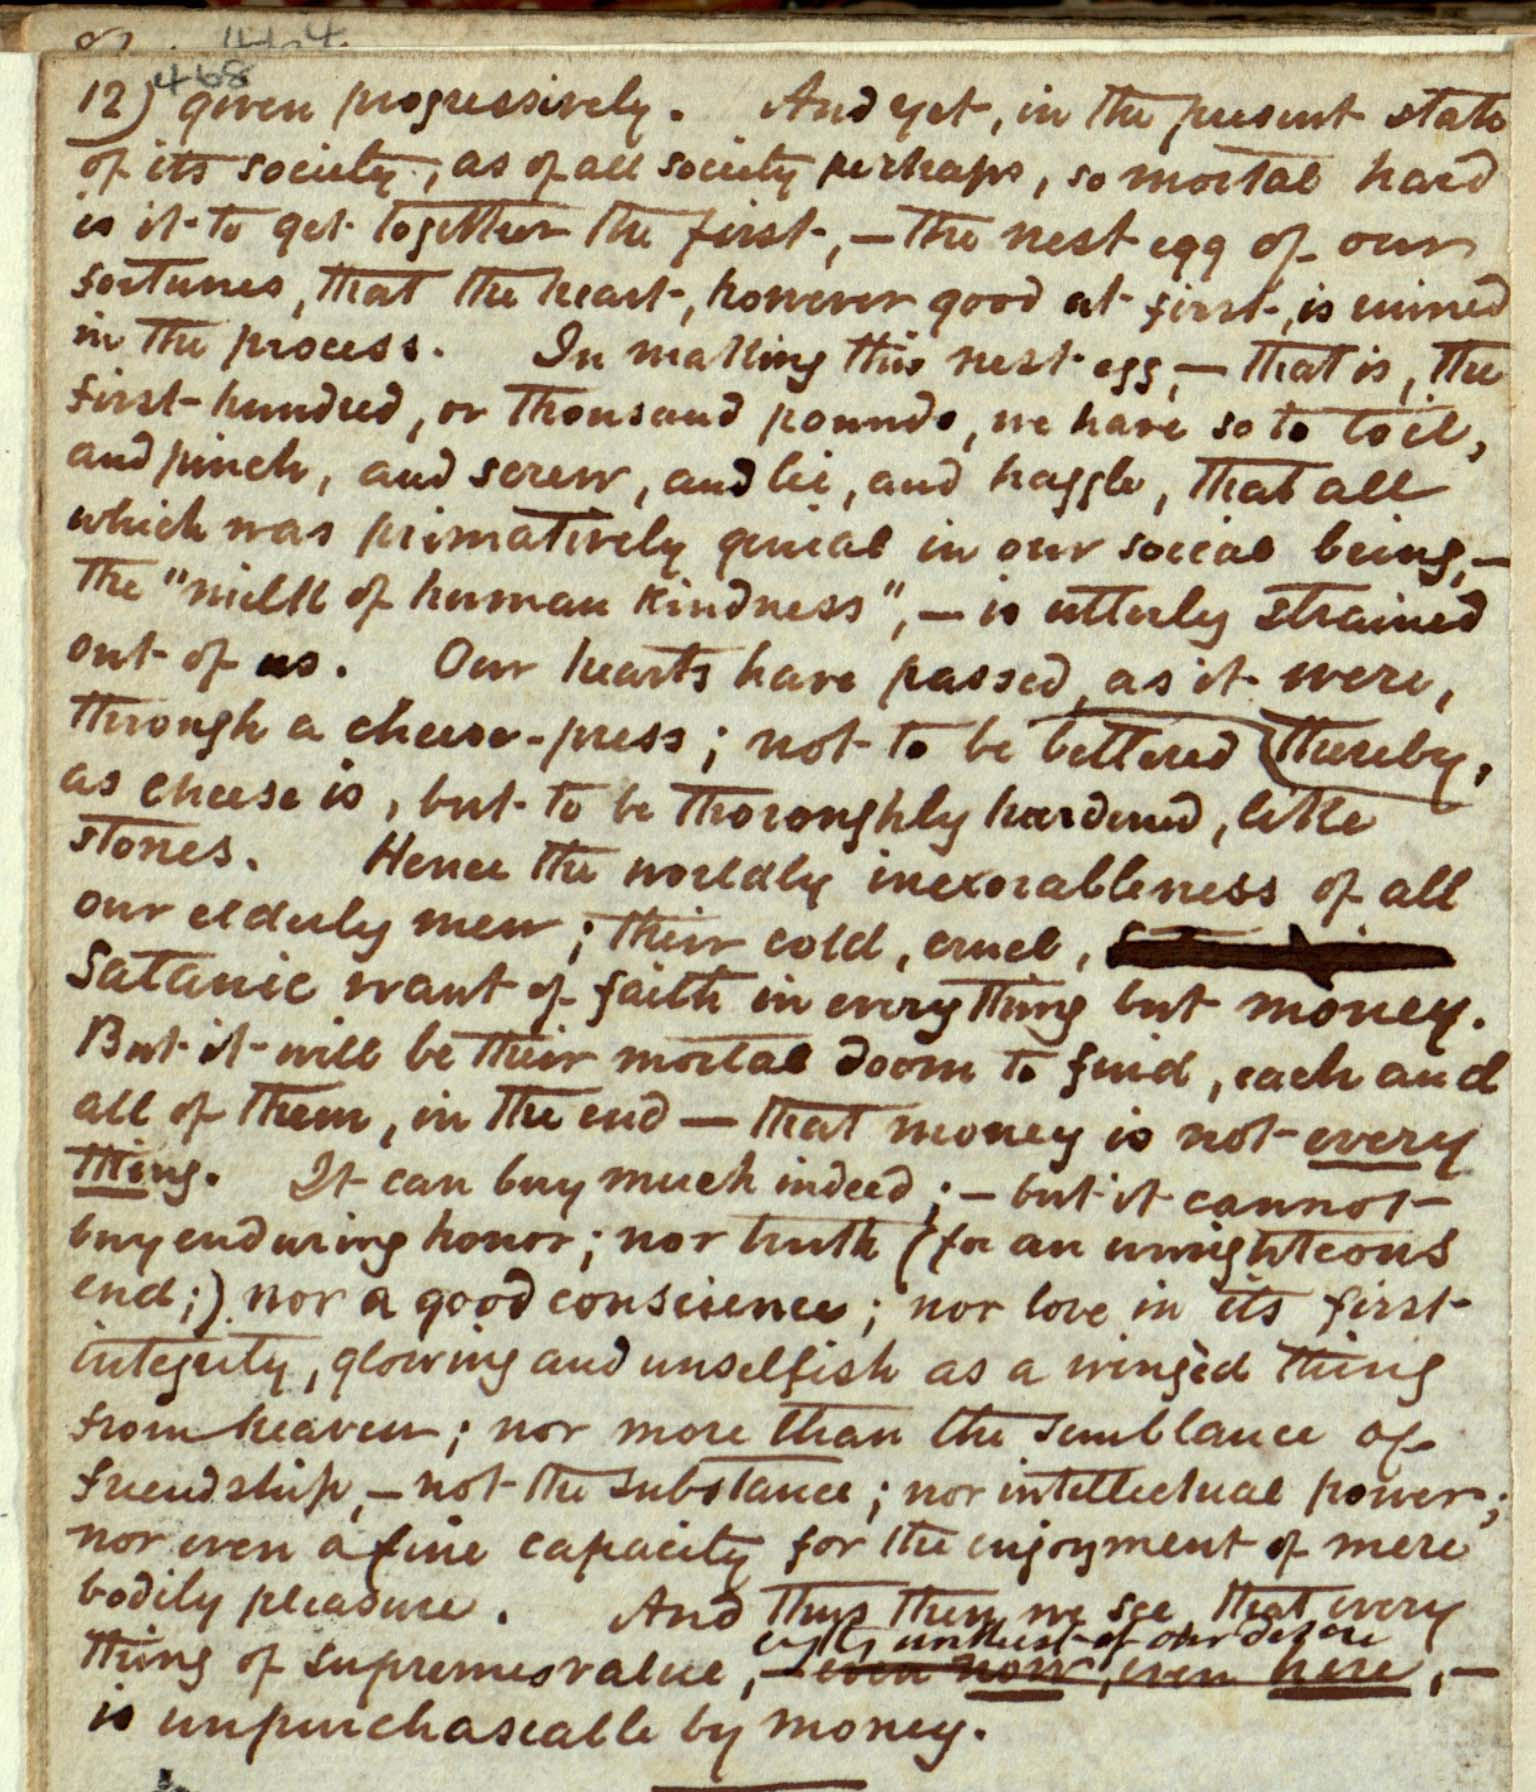 468
12) given progressively. And yet, in the present state
of its society, as of all society perhaps, so mortal hard
is it to get together the first, — the nest egg of our
fortunes, that the heart, however good at first, is ruined
in the process. In making this nest egg, — that is, the
first hundred, or thousand pounds, we have so to toil,
and pinch, and screw, and lie, and haggle, that all
which was primatively genial in our social being, —
the "milk of human kindness", — is utterly strained
out of us. Our hearts have passed, as it were,
through a cheese-press; not to be bettered thereby,
as cheese is, but to be thoroughly hardened, like
stones. Hence the worldly inexorableness of all
our elderly men; their cold, cruel,
Satanic want of faith in every thing but money.
But it will be their mortal doom to find, each and
all of them, in the end — that money is not every
thing. It can buy much indeed; — but it cannot
buy enduring honor; nor truth (for an unrighteous
end;) nor a good conscience; nor love in its first
integrity, glowing and unselfish as a wingèd thing
from heaven; nor more than the semblance of
friendship, — not the substance; nor intellectual power;
nor even a fine capacity for the enjoyment of mere
bodily pleasure. And thus then we see, that every
of our desire
thing of supremes value, — even now, even here, —
is unpurchaseable by money.